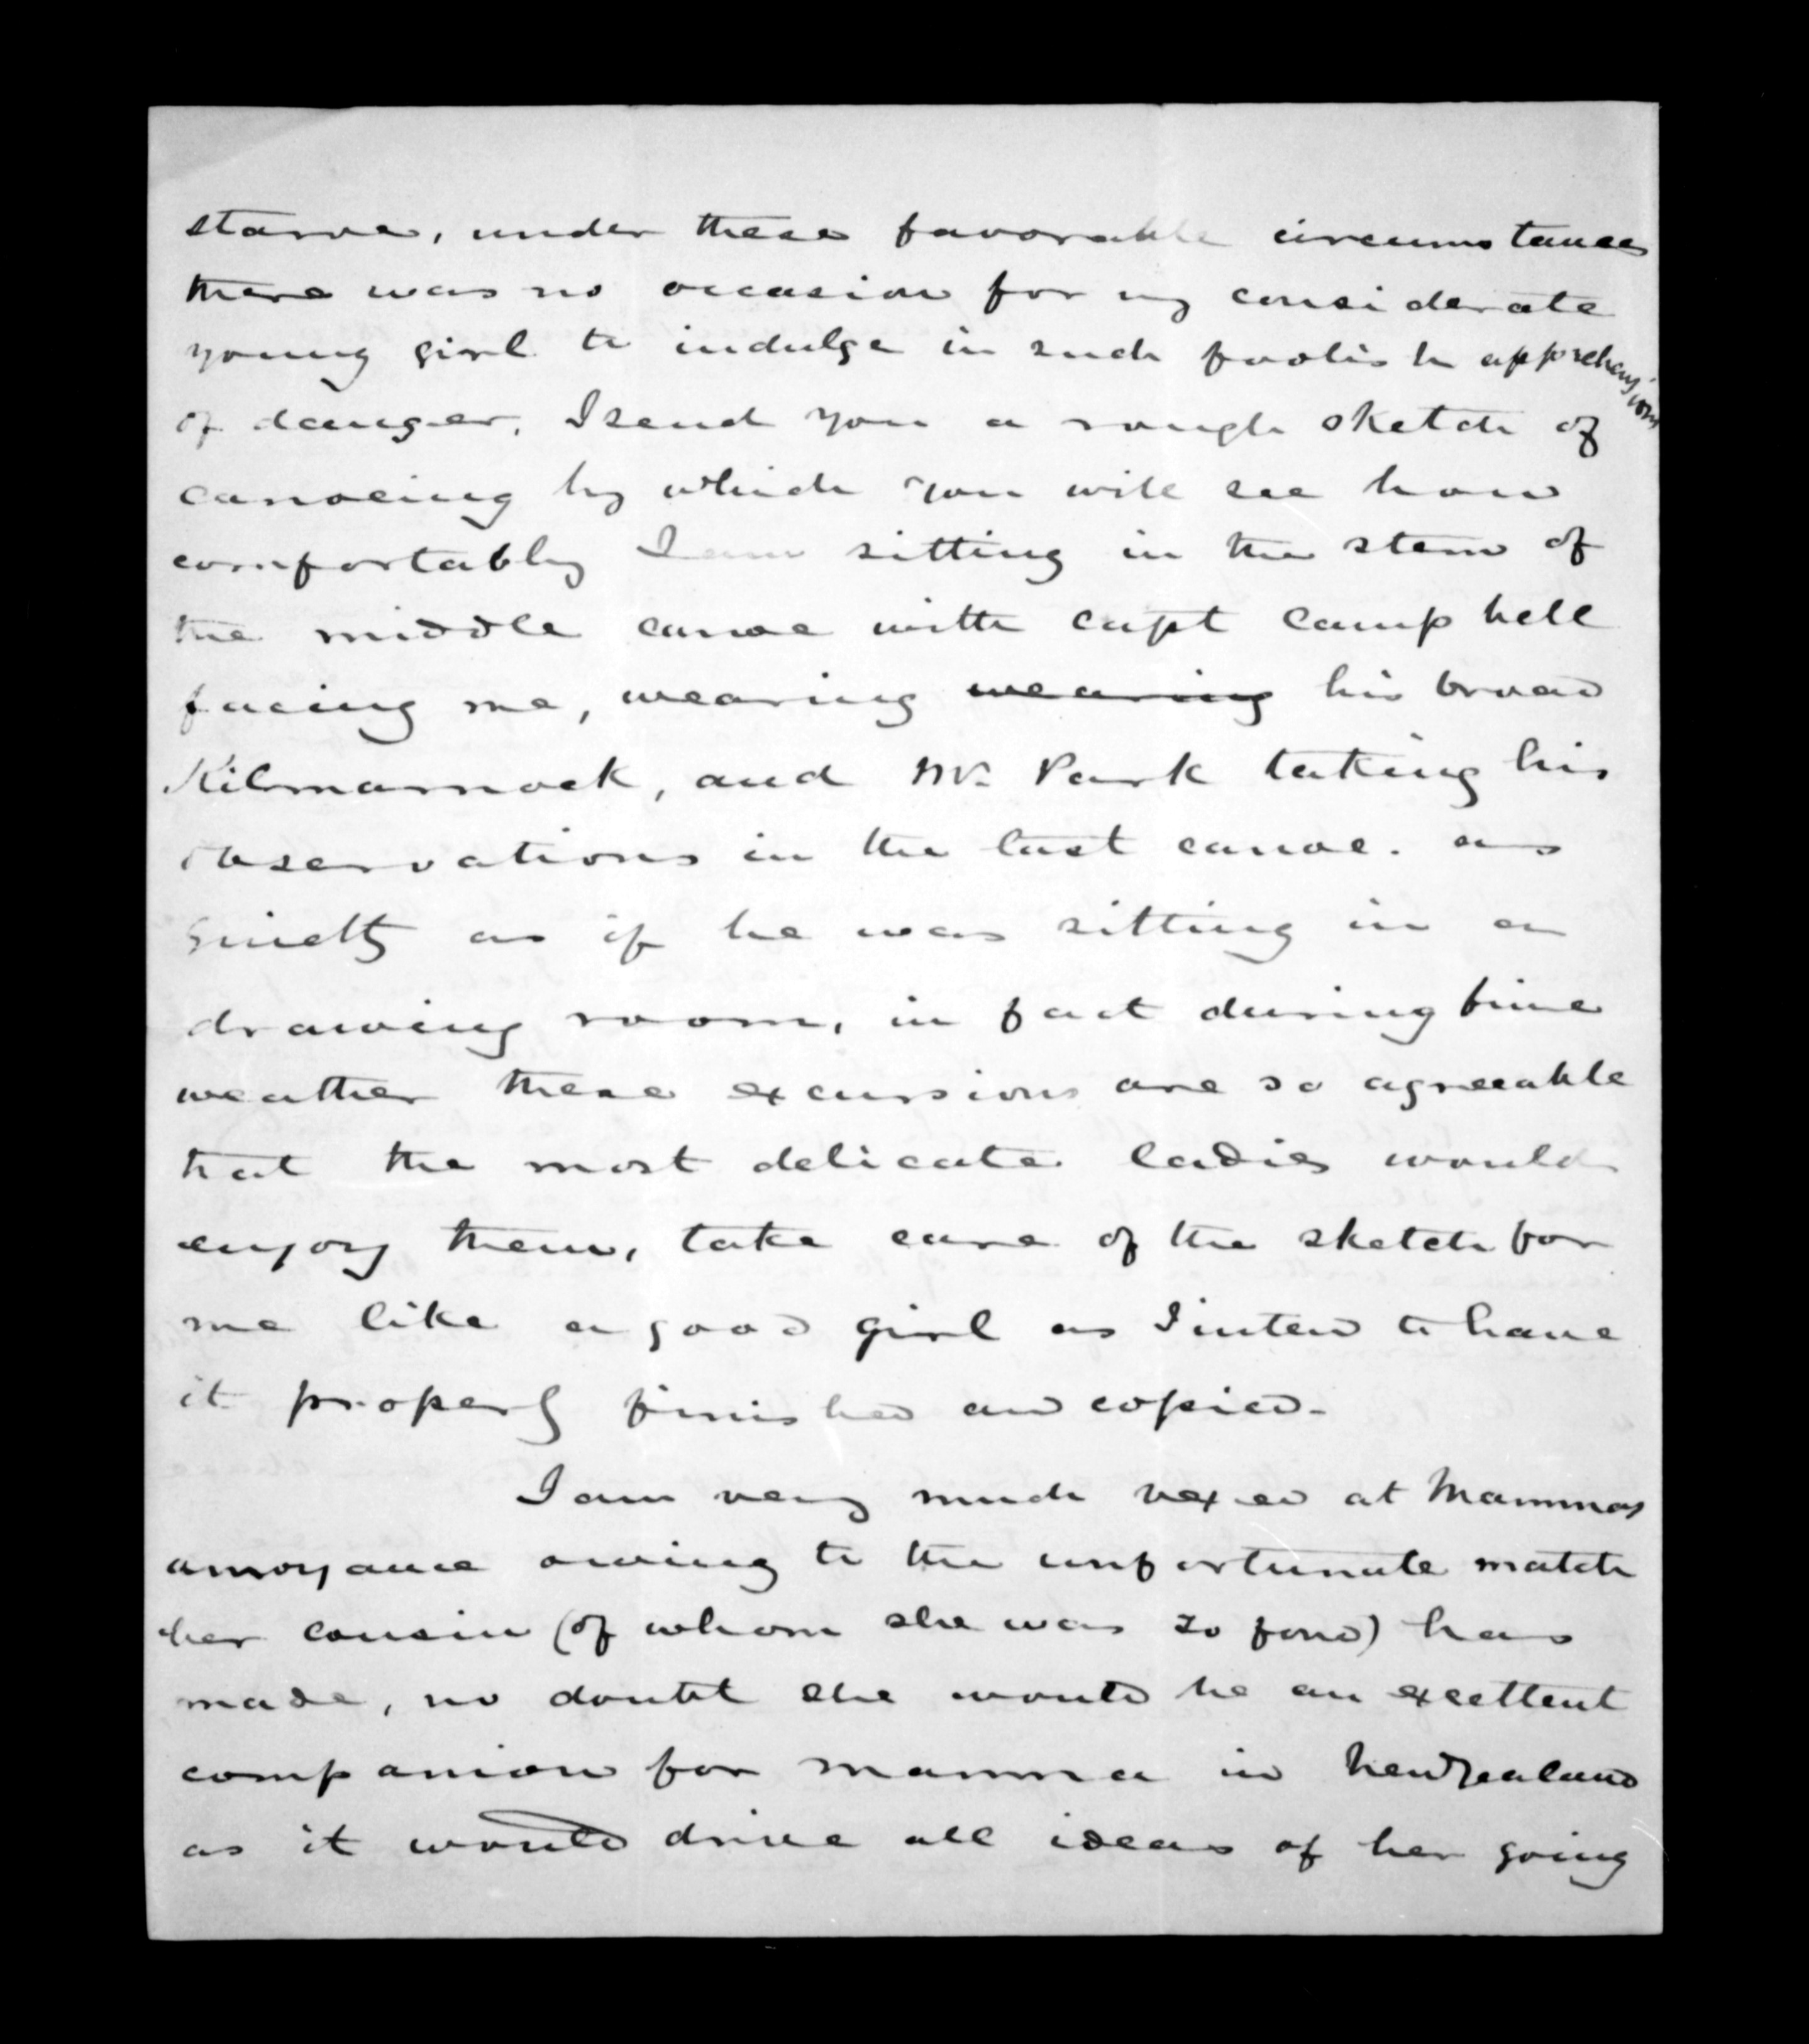 starve, under these favorable circumstances
there was no occasion for my considerate
young girl to indulge in such foolish apprehensions
of danger. I send you a rough sketch of
canoeing by which you will see how
comfortably I am sitting in the stern of
the middle canoe with capt Campbell
facing me, wearing wearing his broad
Kilmarnock, and Mr. Park taking his
observations in the last canoe. as
quietly as if he was sitting in a
drawing room, in fact during fine
weather these excursions are so agreeable
that the most delicate ladies would
enjoy them, take care of the sketch for
me like a good girl as I intend to have
it properly finished and copied.
I am very much vexed at Mammas
annoyance owing to the unfortunate match
her cousin (of whom she was so fond) has
made, no doubt she would be an excellent
companion for mamma in New Zealand
as it would drive all ideas of her going